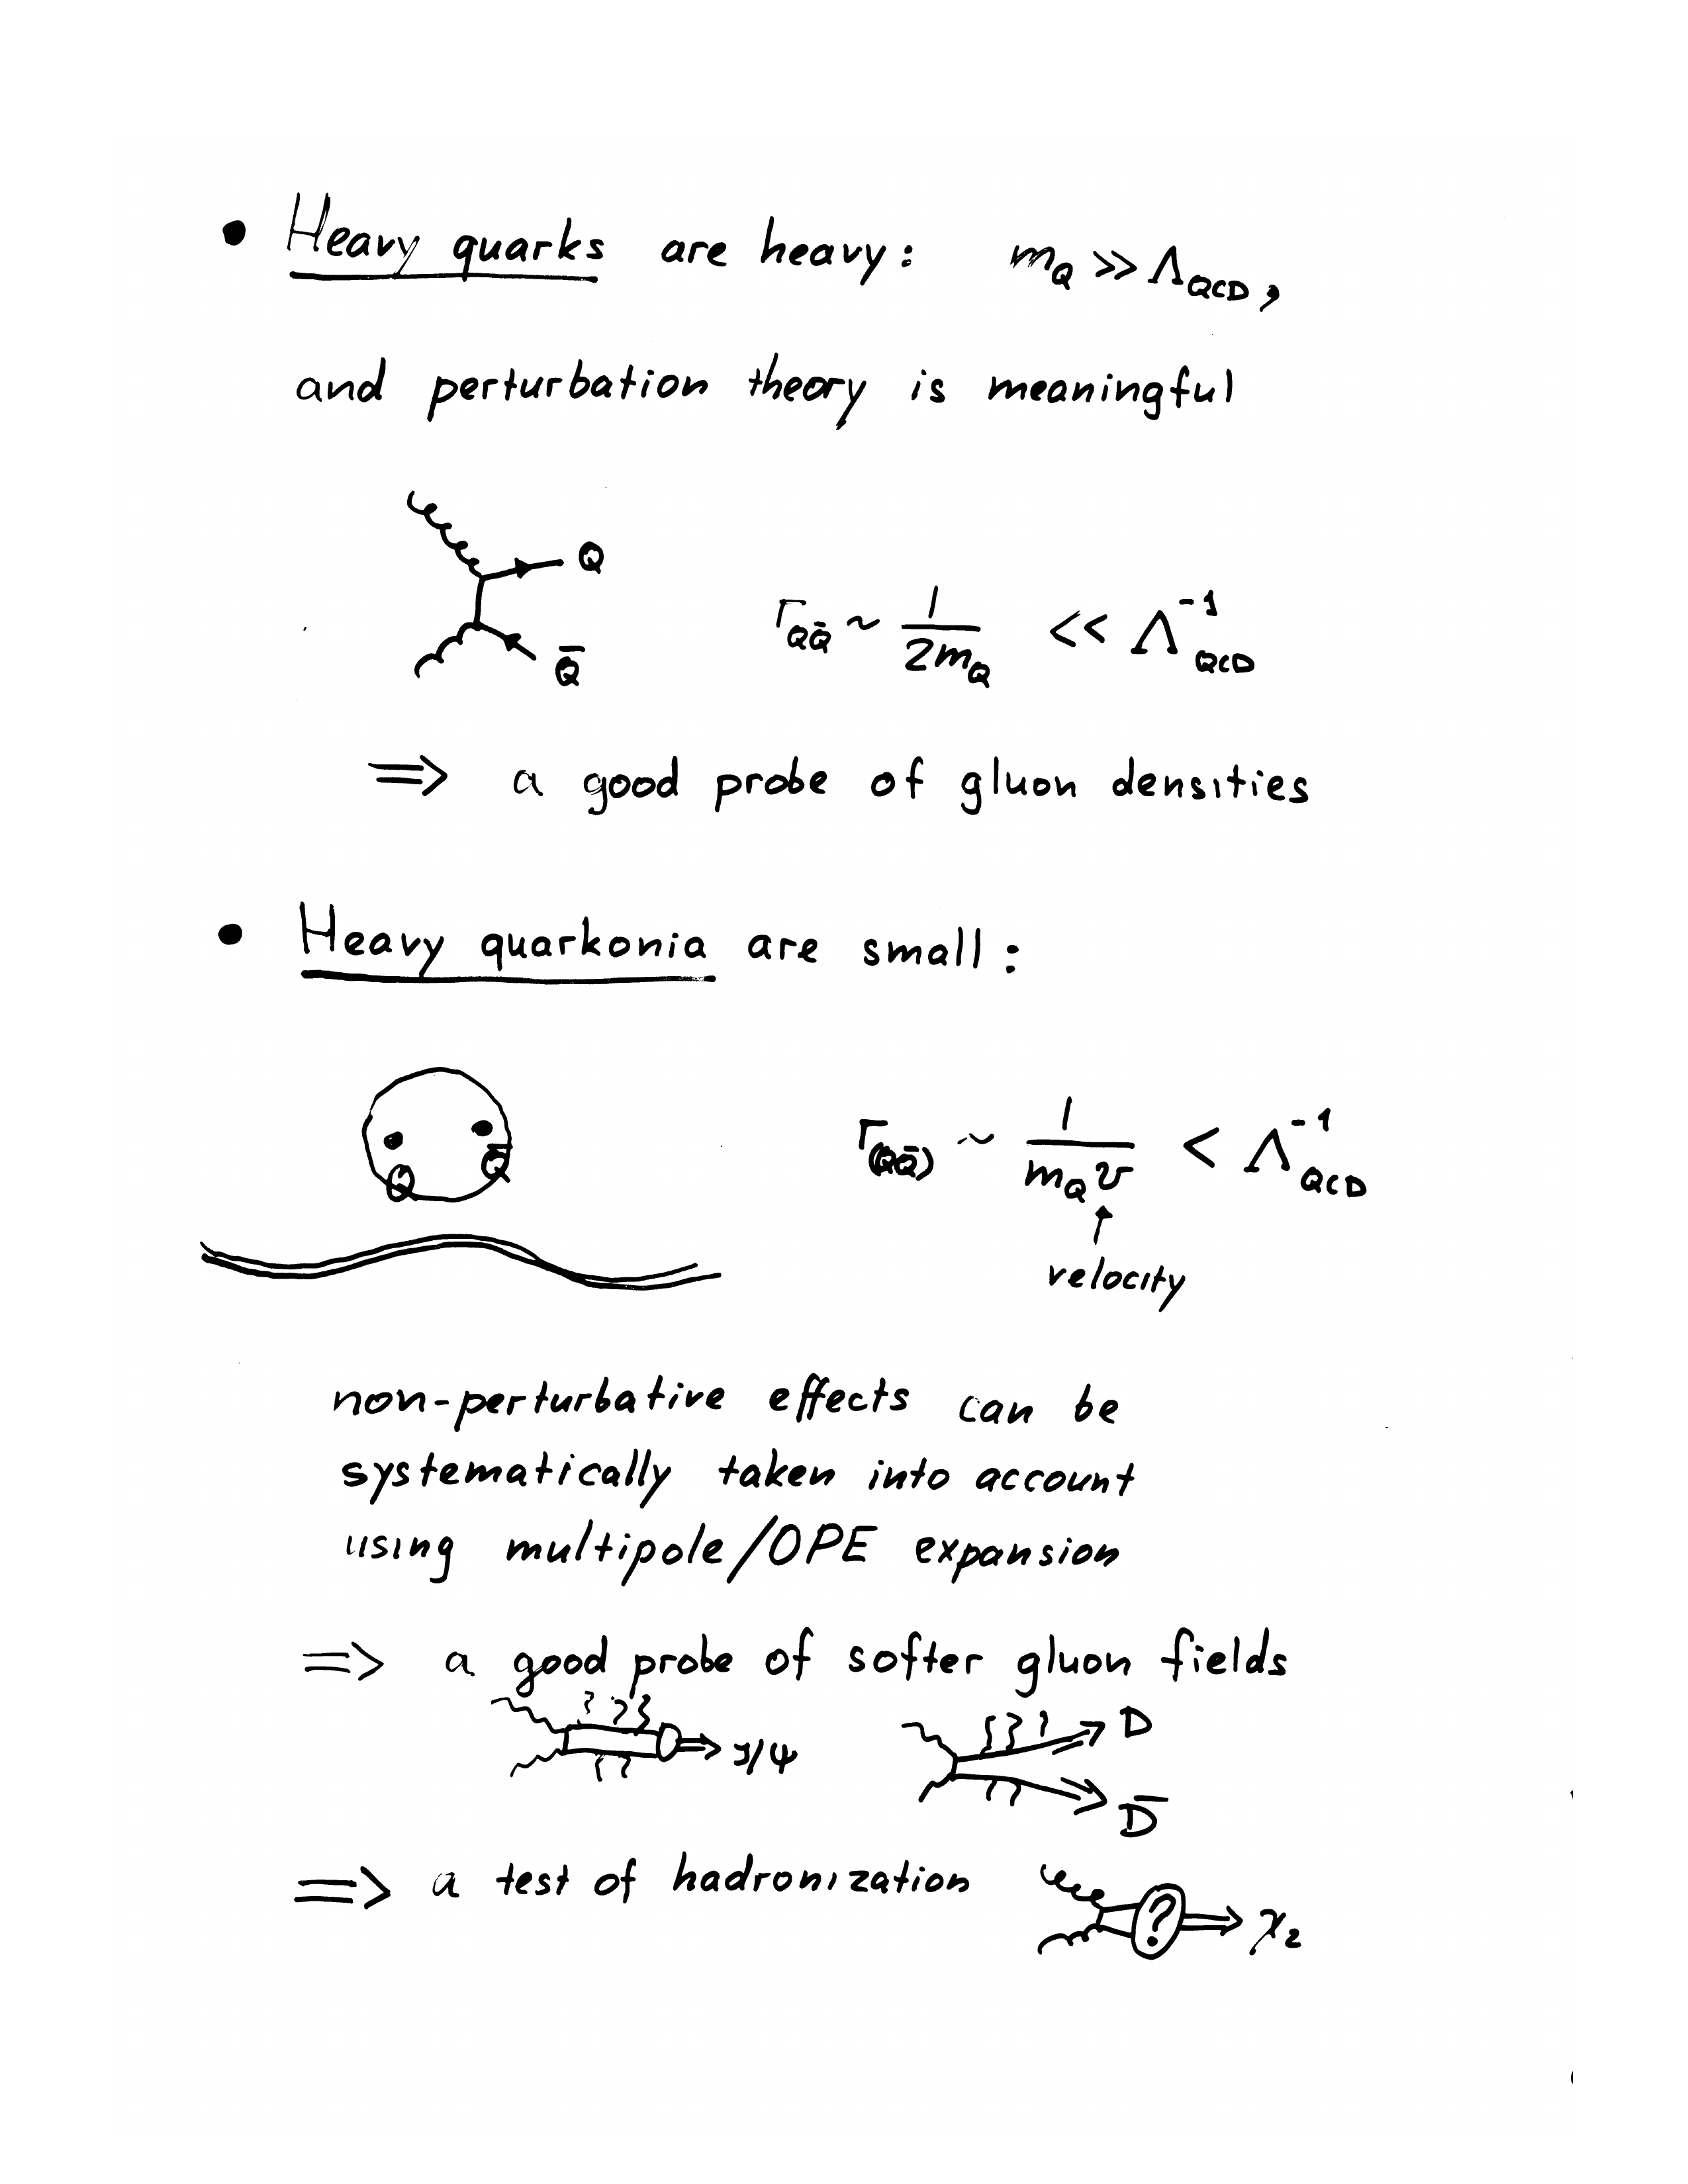 • Heavy quarks are heavy: m_Q >> Λ_QCD,
and perturbation theory is meaningful
Q
Q̄
r_QQ̄ ~ 1/2m_Q << Λ^-1_QCD
=> a good probe of gluon densities
• Heavy quarkonia are small:
Q Q̄
r_(QQ̄) ~ 1/m_Q v < Λ^-1_QCD
velocity
non-perturbative effects can be
systematically taken into account
using multipole/OPE expansion
=> a good probe of softer gluon fields
J/ψ
D
D̄
=> a test of hadronization
? χ_2